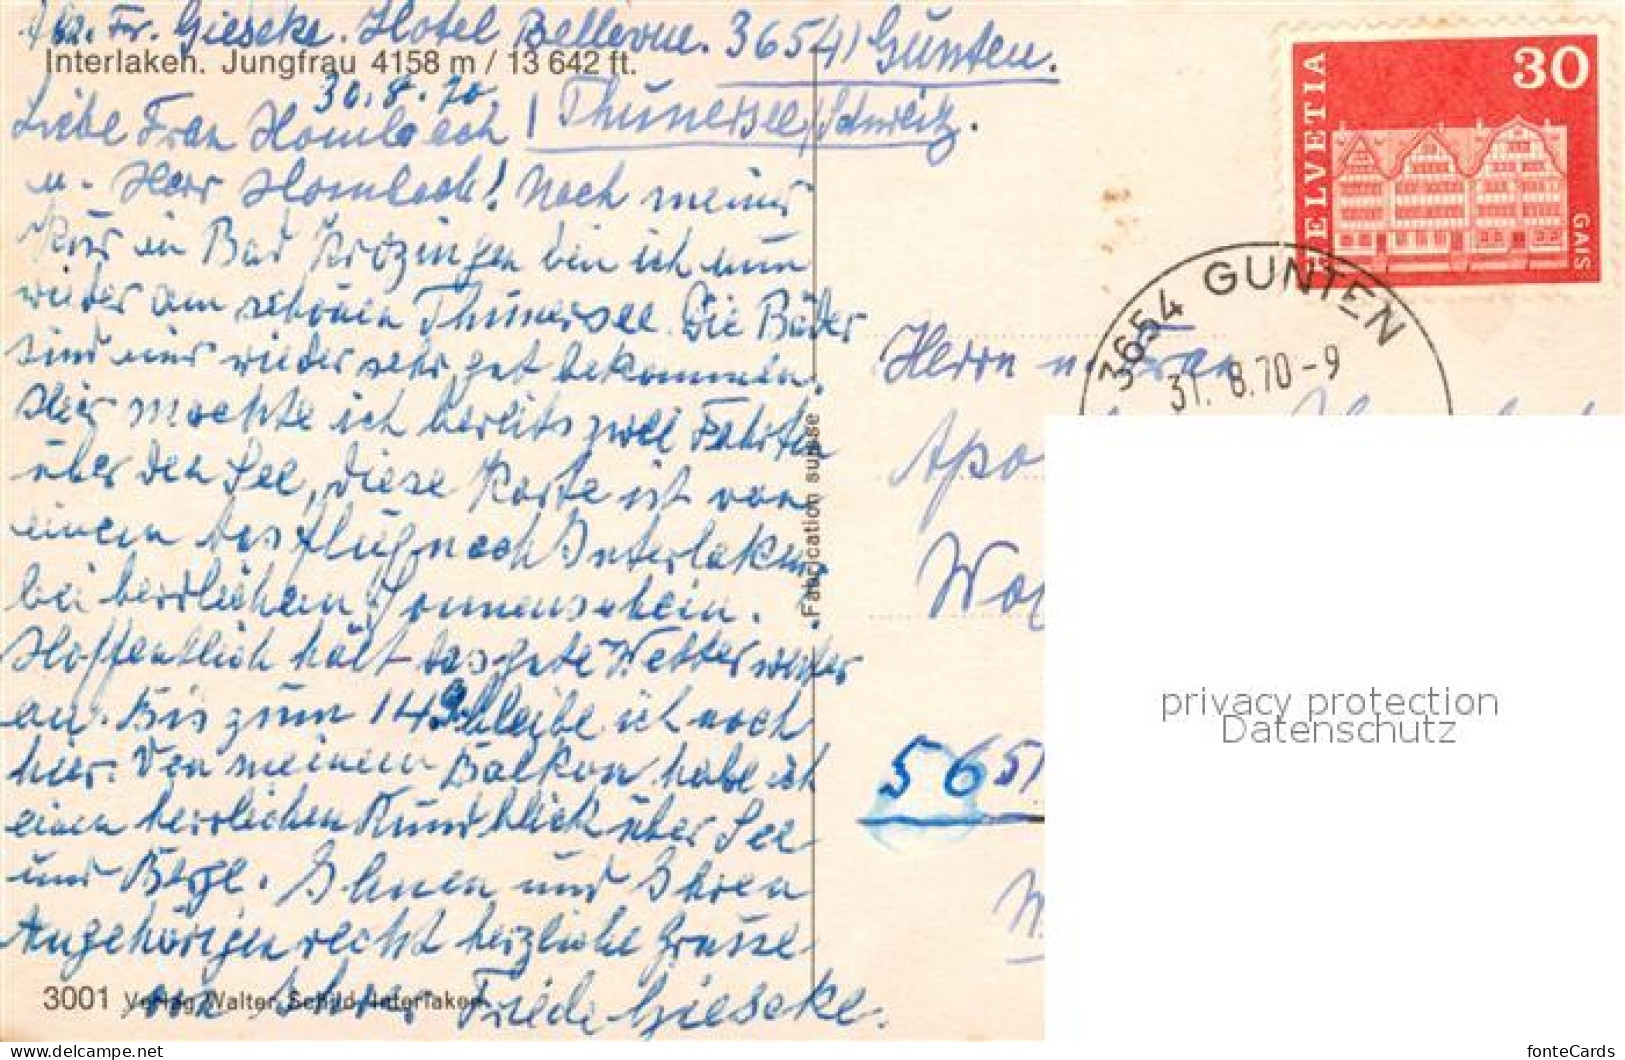 Abs. Fr. Gieseke. Hotel Bellevue. 3654) Gunten.
Interlaken. Jungfrau 4158 m / 13 642 ft.
30.8.70.
Thunersee/Schweitz.
Liebe Frau Hombach
u. Herr Hombach! Nach meiner
Kur in Bad Krozingen bin ich nun
wieder am schönen Thunersee. Die Bäder
sind mir wieder sehr gut bekommen.
Hier machte ich bereits zwei Fahrten
über den See, diese Karte ist von
einem Ausflug nach Interlaken
bei herrlichem Sonnenschein.
Hoffentlich hält das gute Wetter weiter
an. Bis zum 14.9. bleibe ich noch
hier. Von meinem Balkon habe ich
einen herrlichen Rundblick über See
und Berge. Ihnen und Ihren
Angehörigen recht herzliche Grüsse
von Ihrer Friede Gieseke.
3001 Verlag Walter Schild, Interlaken
Fabrication suisse
HELVETIA
30
GAIS
3654 GUNTEN
31. 8.70-9
Herrn u. Frau
Apo
565
privacy protection
Datenschutz
http://www.delcampe.net
fonteCards